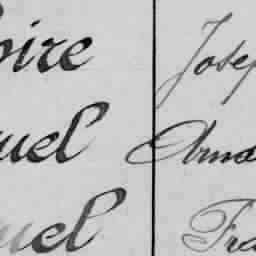 oire Josep
uel Ama
uel Fra